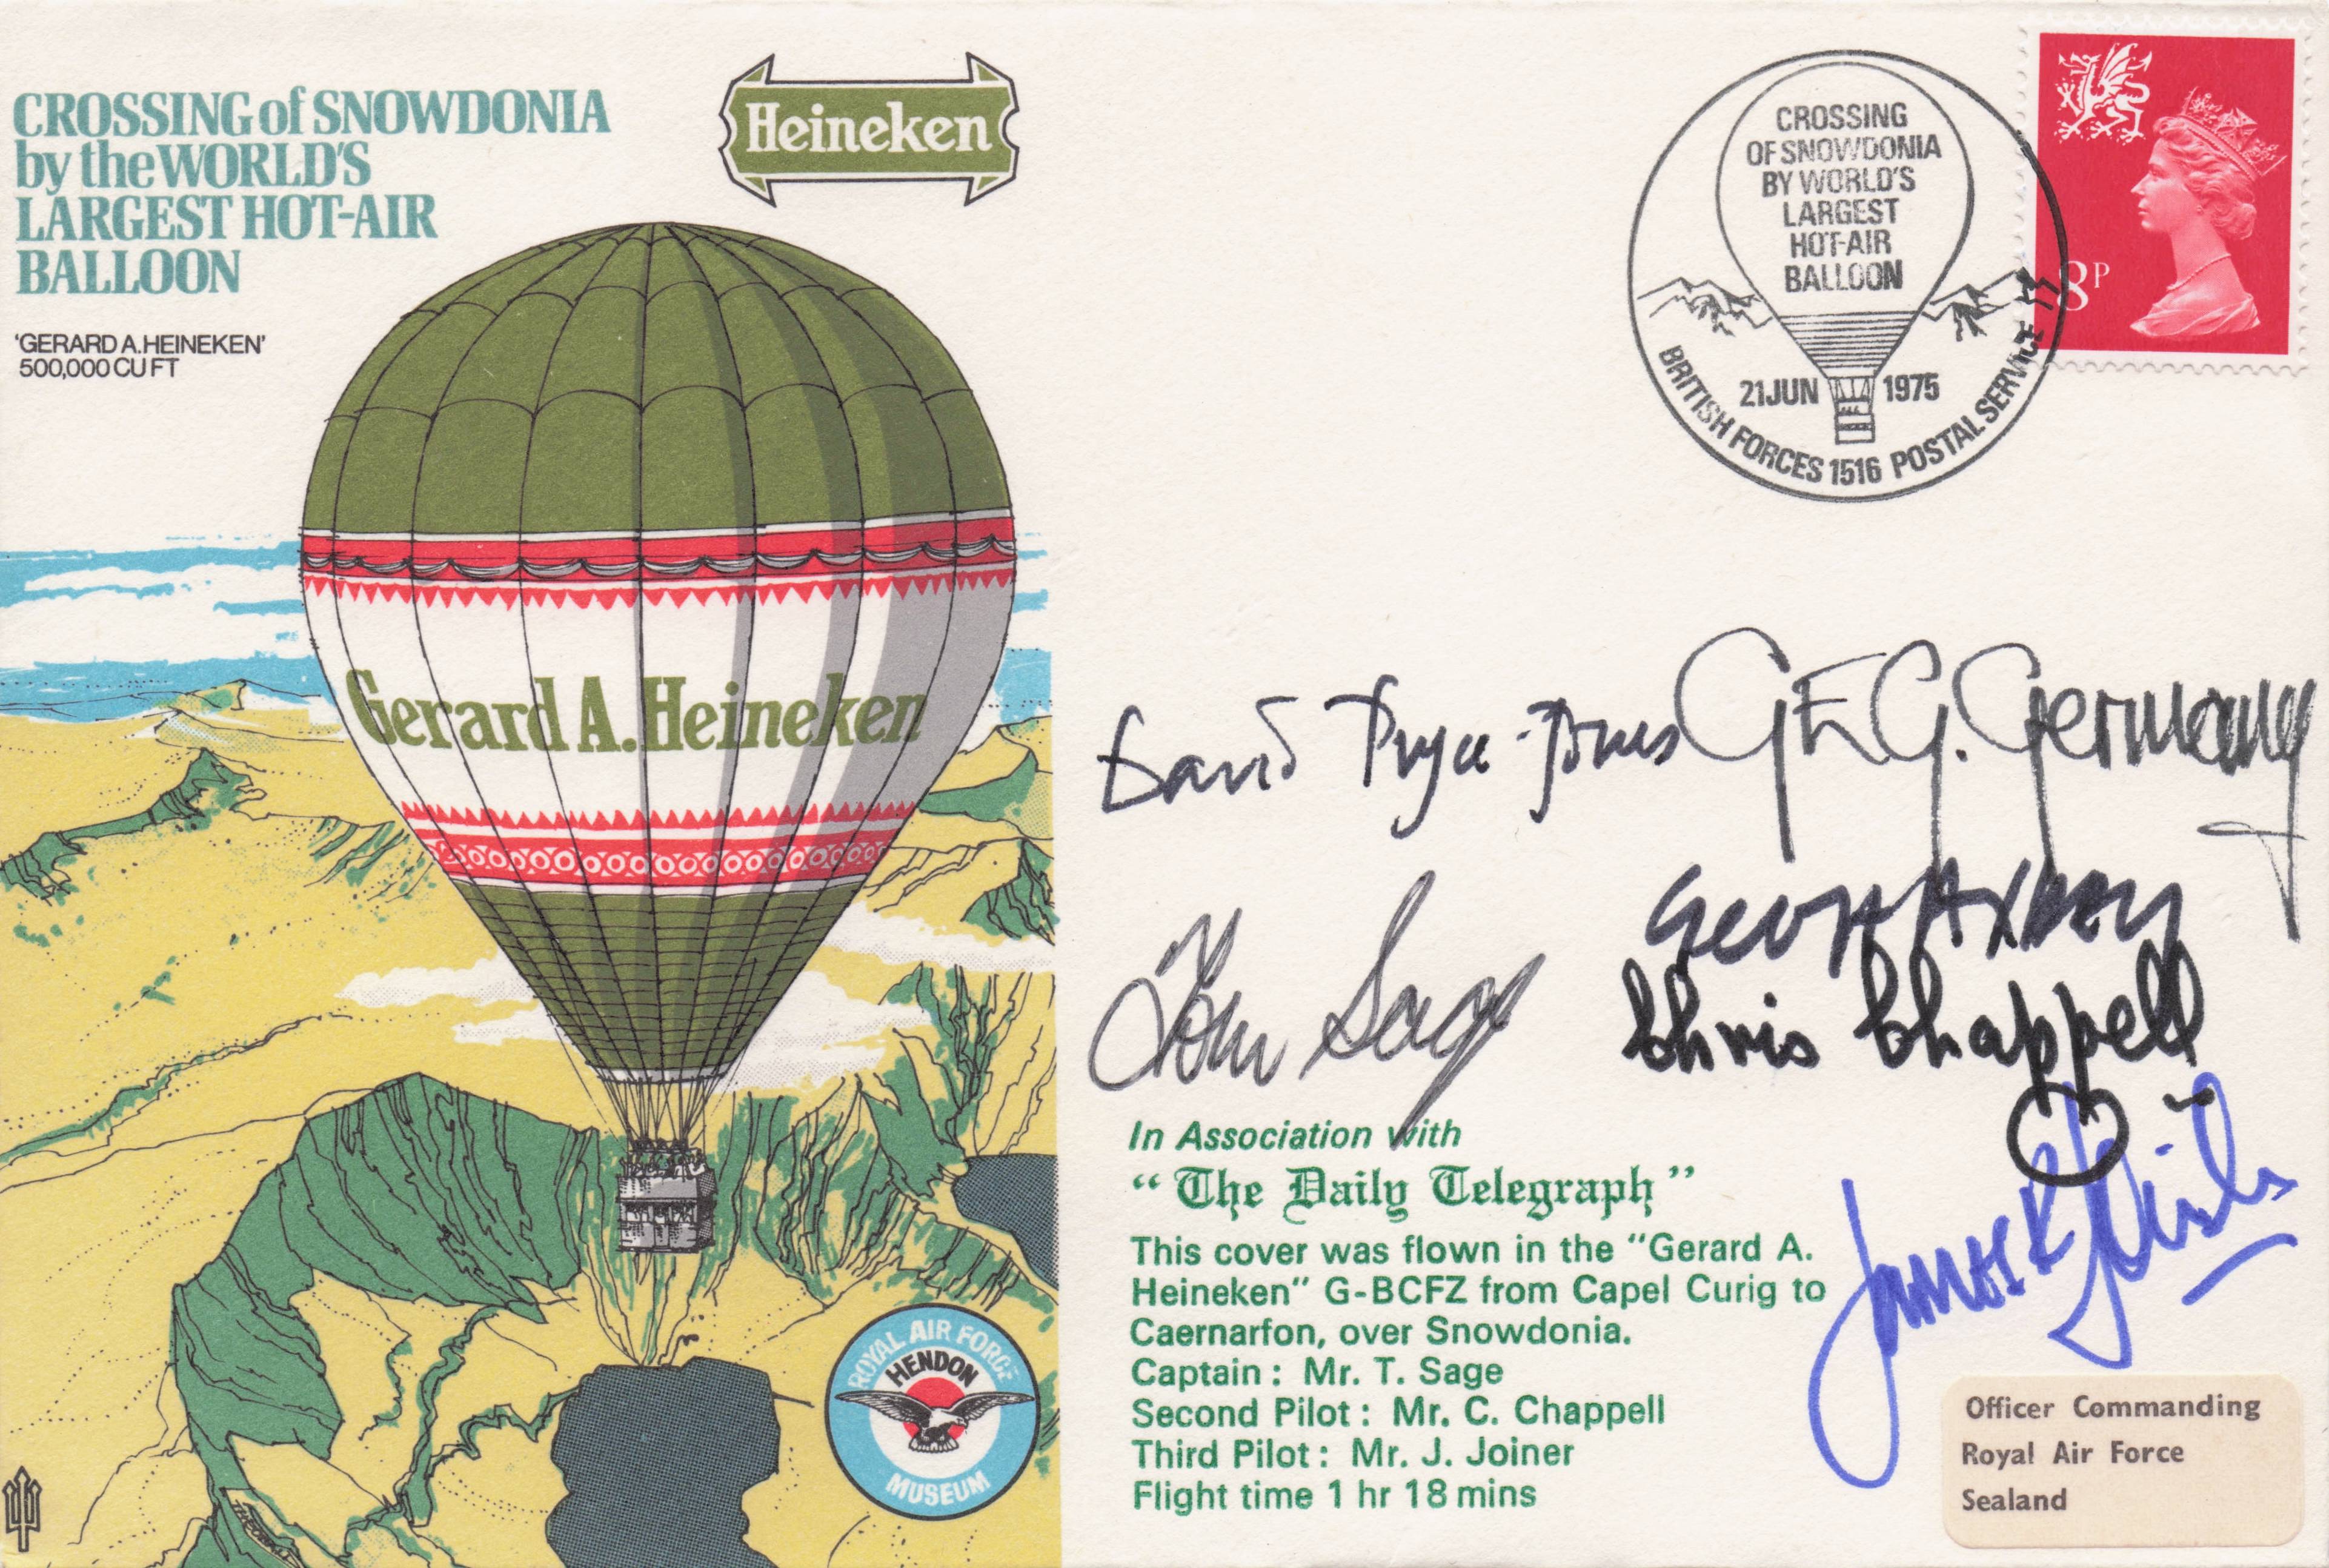 CROSSING of SNOWDONIA
by the WORLD'S
LARGEST HOT-AIR
BALLOON
'GERARD A. HEINEKEN'
500,000 CU FT
Heineken
Gerard A. Heineken
ROYAL AIR FORCE
HENDON
MUSEUM
CROSSING
OF SNOWDONIA
BY WORLD'S
LARGEST
HOT-AIR
BALLOON
21 JUN 1975
BRITISH FORCES 1516 POSTAL SERVICE
8P
David Pryce-Jones
G E G. Germany
Tom Sage
Chris Chappell
James R
In Association with
"The Daily Telegraph"
This cover was flown in the "Gerard A.
Heineken" G-BCFZ from Capel Curig to
Caernarfon, over Snowdonia.
Captain: Mr. T. Sage
Second Pilot: Mr. C. Chappell
Third Pilot: Mr. J. Joiner
Flight time 1 hr 18 mins
Officer Commanding
Royal Air Force
Sealand